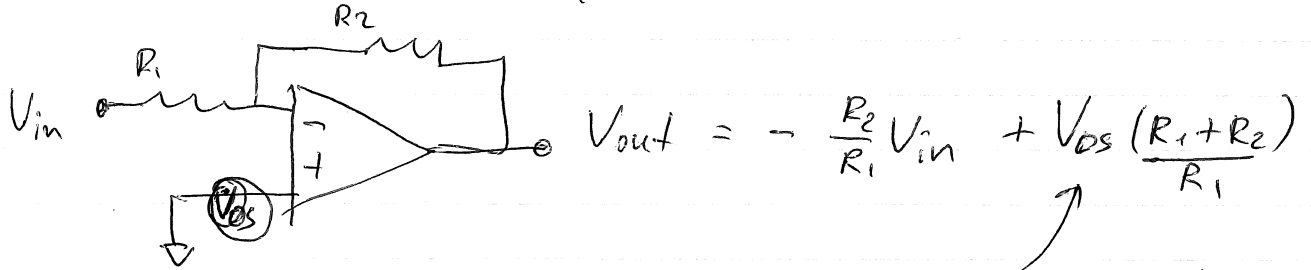 R2
R1
Vin
-
+
VOS
Vout = - R2/R1 Vin + VOS (R1+R2)/R1